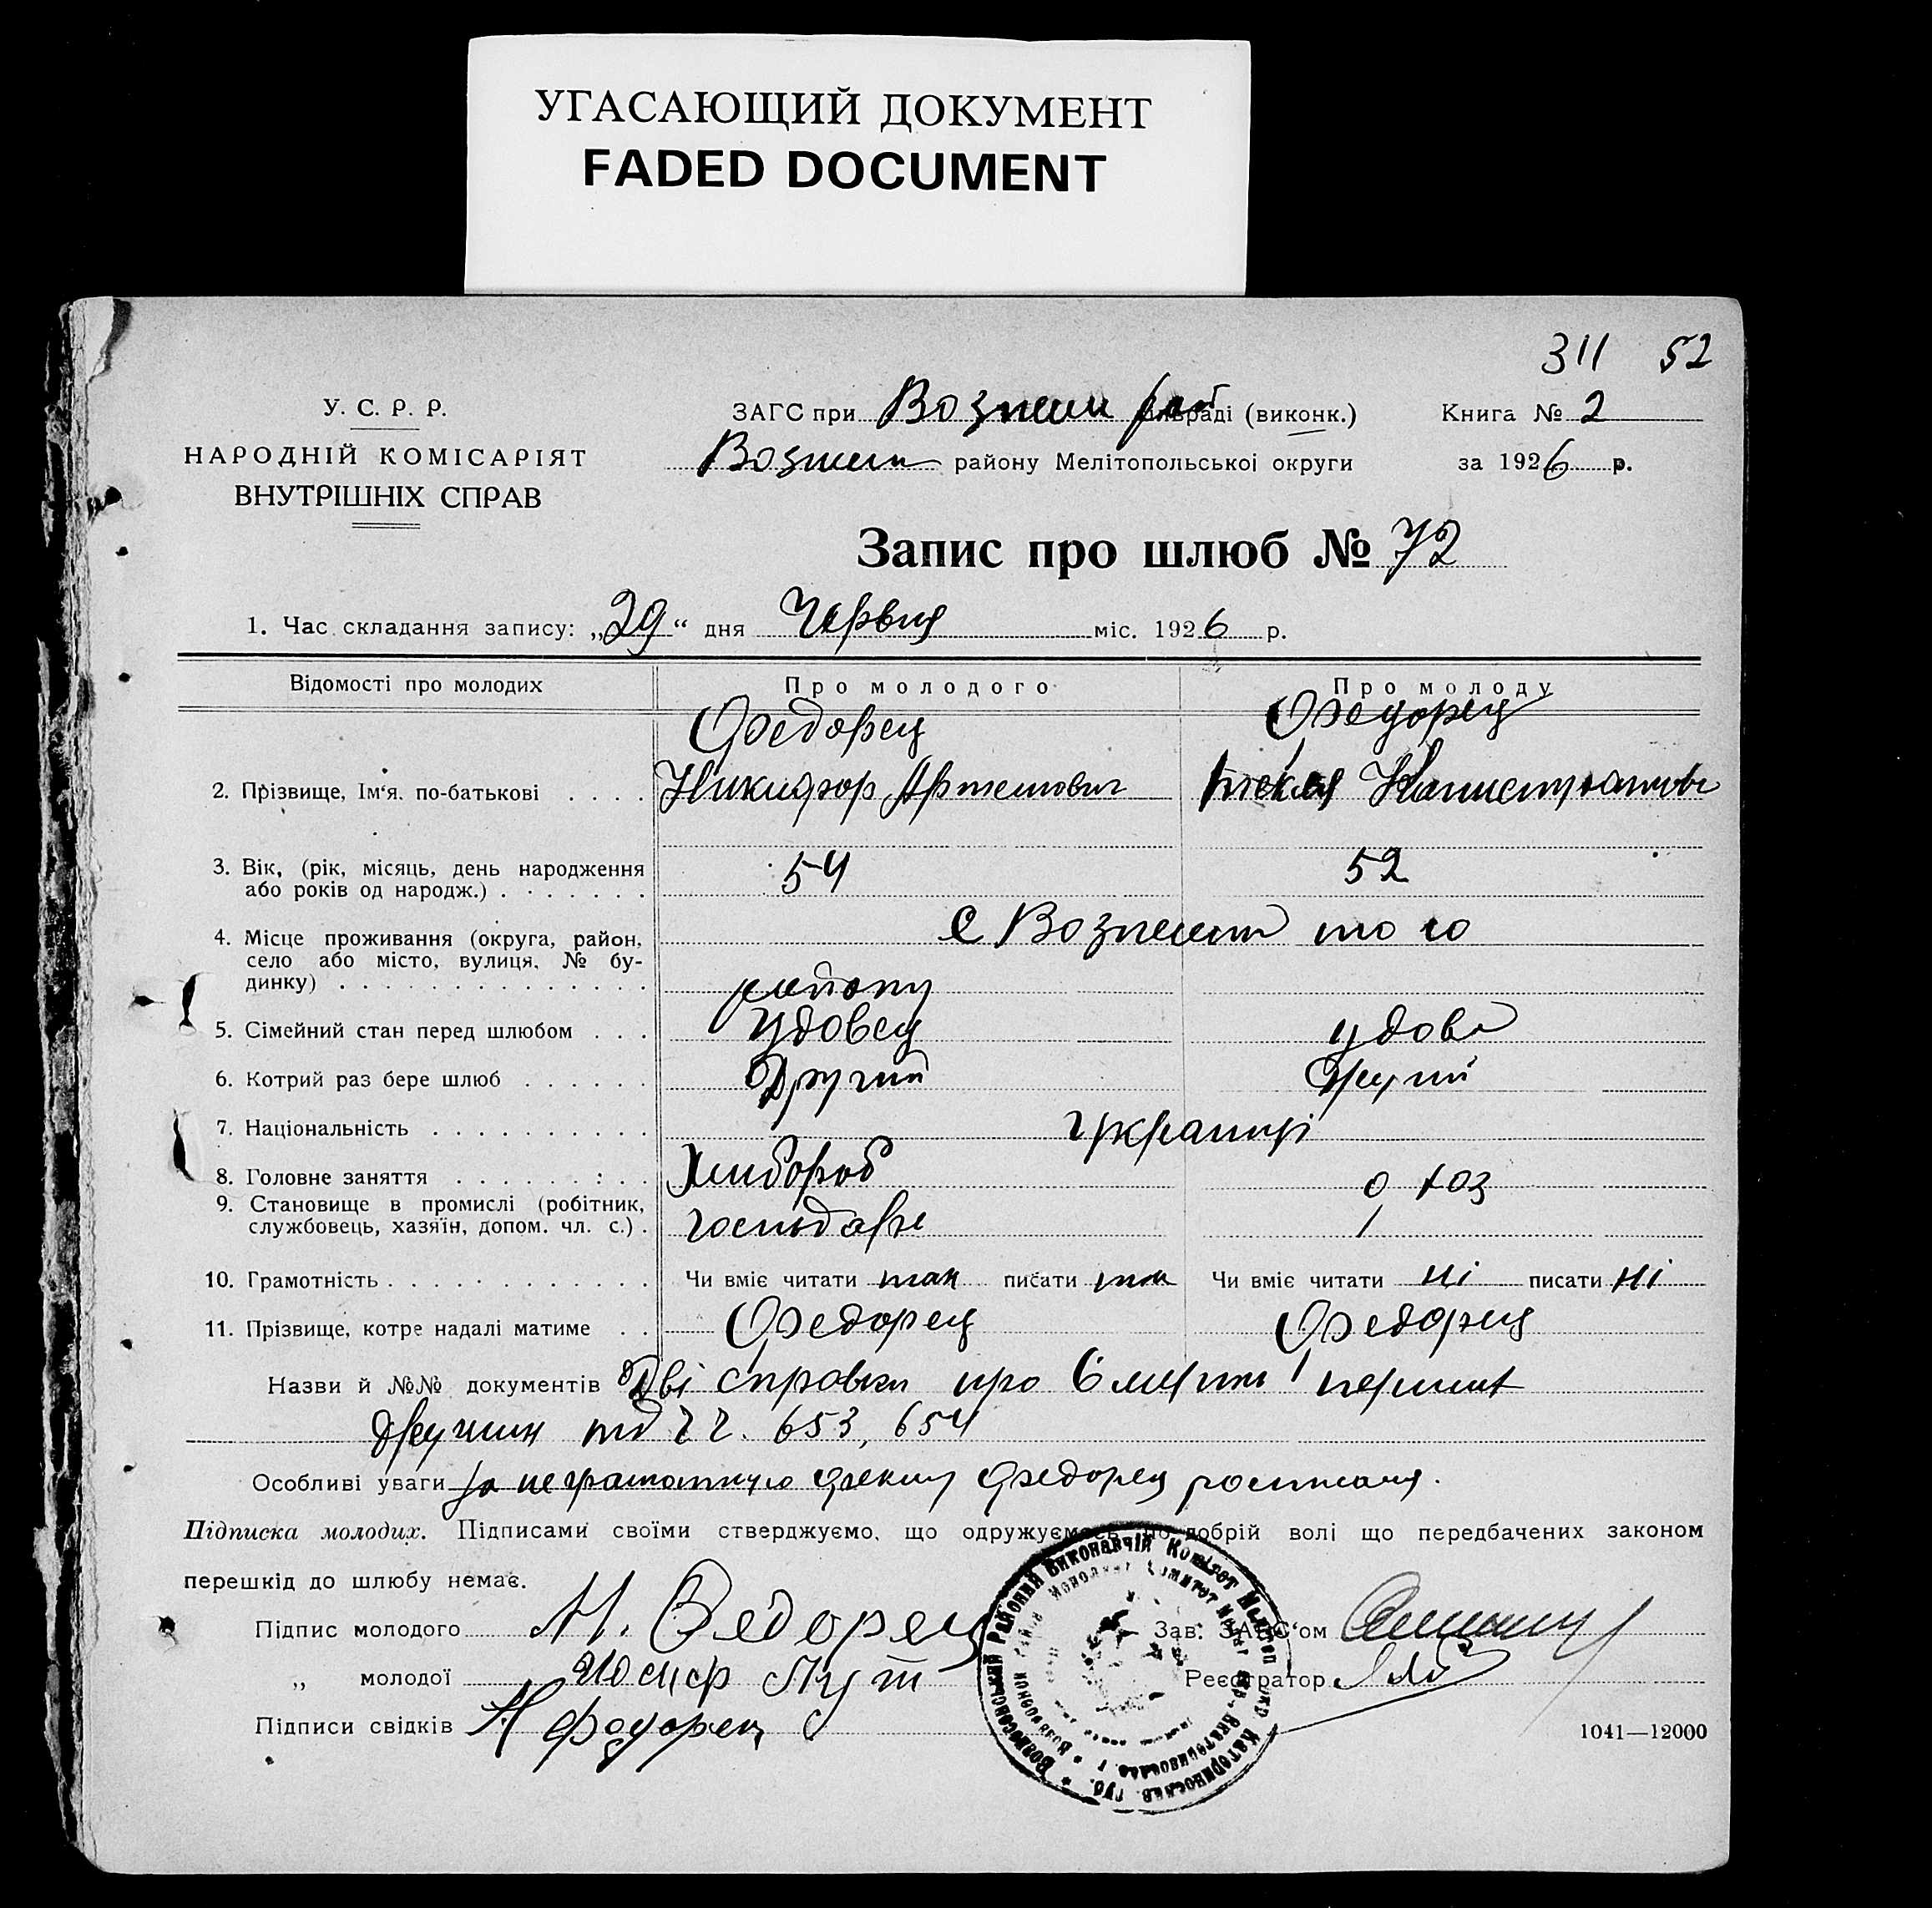 УГАСАЮЩИЙ ДОКУМЕНТ
FADED DOCUMENT
311 52
У. С. Р. Р.
НАРОДНІЙ КОМІСАРІЯТ
ВНУТРІШНІХ СПРАВ
ЗАГС при Вознесен рай (виконк.)
Вознесен району Мелітопольської округи
Книга № 2
за 1926 р.
Запис про шлюб № 72
1. Час складання запису: „29“ дня Червня міс. 1926 р.
Відомості про молодих Про молодого Про молоду
Федорец Федорец
2. Прізвище, Ім'я. по-батькові . . . . Никифор Артемович Текля
3. Вік, (рік, місяць, день народження
або років од народж.) . . . . . . . 54 52
4. Місце проживання (округа, район, с Вознесен то го
село або місто, вулиця, № бу-
динку) . . . . . . . . . . . . . . району
5. Сімейний стан перед шлюбом . . . удовец удова
6. Котрий раз бере шлюб . . . . . . Другий Другий
7. Національність . . . . . . . . . . украинці
8. Головне заняття . . . . . . . : . . Хлибороб
9. Становище в промислі (робітник,
службовець, хазяїн, допом. чл. с.) . господарь
10. Грамотність . . . . . . . . . . . . Чи вміє читати так писати так Чи вміє читати ні писати ні
11. Прізвище, котре надалі матиме . . Федорец Федорец
Назви й №№ документів Дві справки про смерть
653, 654
Особливі уваги за неграмотную Феклу Федорец росписався.
Підписка молодих. Підписами своїми стверджуємо, що одружуємось по добрій волі що передбачених законом
перешкід до шлюбу немає.
Підпис молодого Н. Федорец
„ молодої Иосиф
Підписи свідків Н Федорец
Зав. ЗАГС'ом
Реєстратор
1041—12000
Вознесенський Районний Виконавчій Комітет Мелітоп. Окр. Катеринослав. губ.